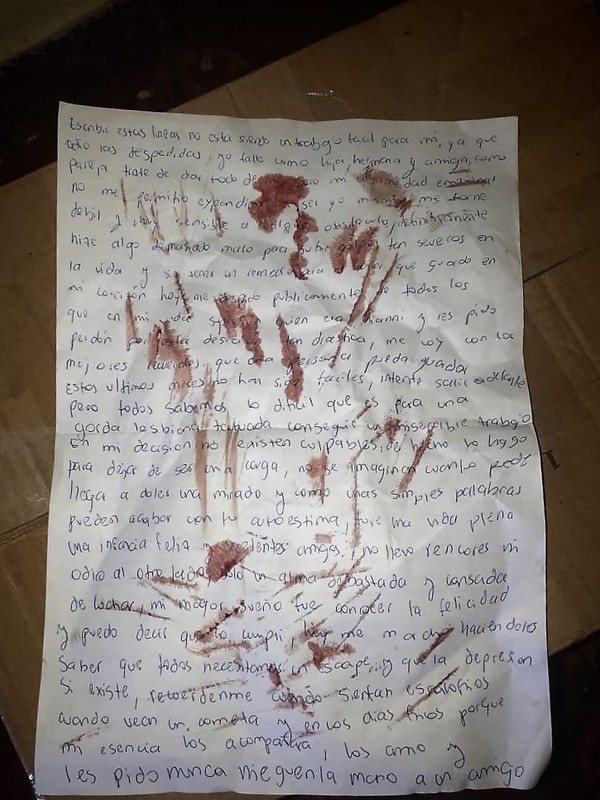 Escribir estas lineas no esta siendo un trabajo facil para mi, ya que
odio las despedidas, yo fallo como hija, hermana y amiga, como
pareja trate de dar todo de mi
no me permitio expandir mi ser yo misma me torne
debil y sensible a obstaculo, definitivamente
hize algo demasiado malo para tan severos en
la vida y sin tener un remedio que guardo en
mi corazón hoy me despido publicamente de todos los
que en mi vida quien era y les pido
perdón por esta tan drastica, me voy con los
mejores recuerdos que una persona pueda guardar
estos ultimos meses no han sido faciles, intente salir adelante
pero todos sabemos lo dificil que es para una
gorda lesbiana tatuada conseguir un miserable trabajo
En mi decisión no existen culpables, de hecho lo hago
para dejar de ser una carga, no se imaginan cuanto puede
llegar a doler una mirada y como unas simples palabras
pueden acabar con tu autoestima, tuve una vida plena
una infancia feliz y excelentes amigos, no llevo rencores ni
odio al otro lado, solo un alma debastada y cansada
de luchar, mi mayor sueño fue conocer la felicidad
y puedo decir que lo cumpli, hoy me marcho haciendoles
saber que todos necesitamos un escape y que la depresion
si existe, recuerdenme cuando sientan escalofrios
cuando vean un cometa y en los dias frios porque
mi esencia los acompañara, los amo y
les pido nunca nieguen la mano a un amigo